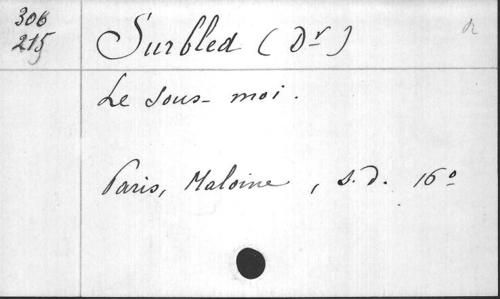 306
215
Surbled (Dr)
Le sous-moi.
Paris, Maloine, s.d. 16°